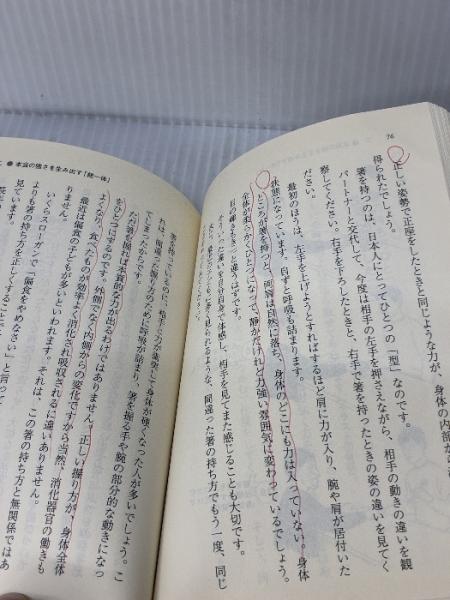 76
正しい姿勢で正座をしたときと同じような力が、身体の内部から
得られたでしょう。
箸を持つのは、日本人にとってひとつの「型」なのです。
パートナーと交代して、今度は相手の左手を押さえながら、相手の動きの違いを観
察してください。右手を下ろしたときと、右手で箸を持ったときの姿の違いを見てく
ださい。
最初のほうは、左手を上げようとすればするほど肩に力が入り、腕や肩が居付いた
状態になっています。自ずと呼吸も詰まります。
ところが箸を持つと、両肩は自然に落ち、身体のどこにも力は入っていない。身体
全体が柔らかくひとつになって、静かだけれど力強い雰囲気に変わっているでしょう。
目の輝きもきっと違うはずです。
この違いを自分自身で体感し、相手を見てまた感じることも大切です。
見られるような、間違った箸の持ち方でもう一度、同じ
● 本当の強さを生み出す「統一体」
箸を持っているのに、相手と力が衝突して身体が強くなった人が多いでしょう。こ
れは、間違った握り方のために呼吸が詰まり、箸を握る手や腕の部分的な動きになっ
てしまったからです。
ただ箸を握れば本質的な力が出るわけではありません。正しい握り方が、身体全体
をひとつにするのです。外側でなく内側からの変化ですから当然、消化器官の働きも
よくなり、食べたものが効率よく消化され吸収されるに違いありません。
最近は偏食の子どもが多いといわれます。それは、この箸の持ち方と無関係ではあ
りません。
いくらスローガンで「偏食をやめなさい」と言って
よりも箸の持ち方を正しくすることで